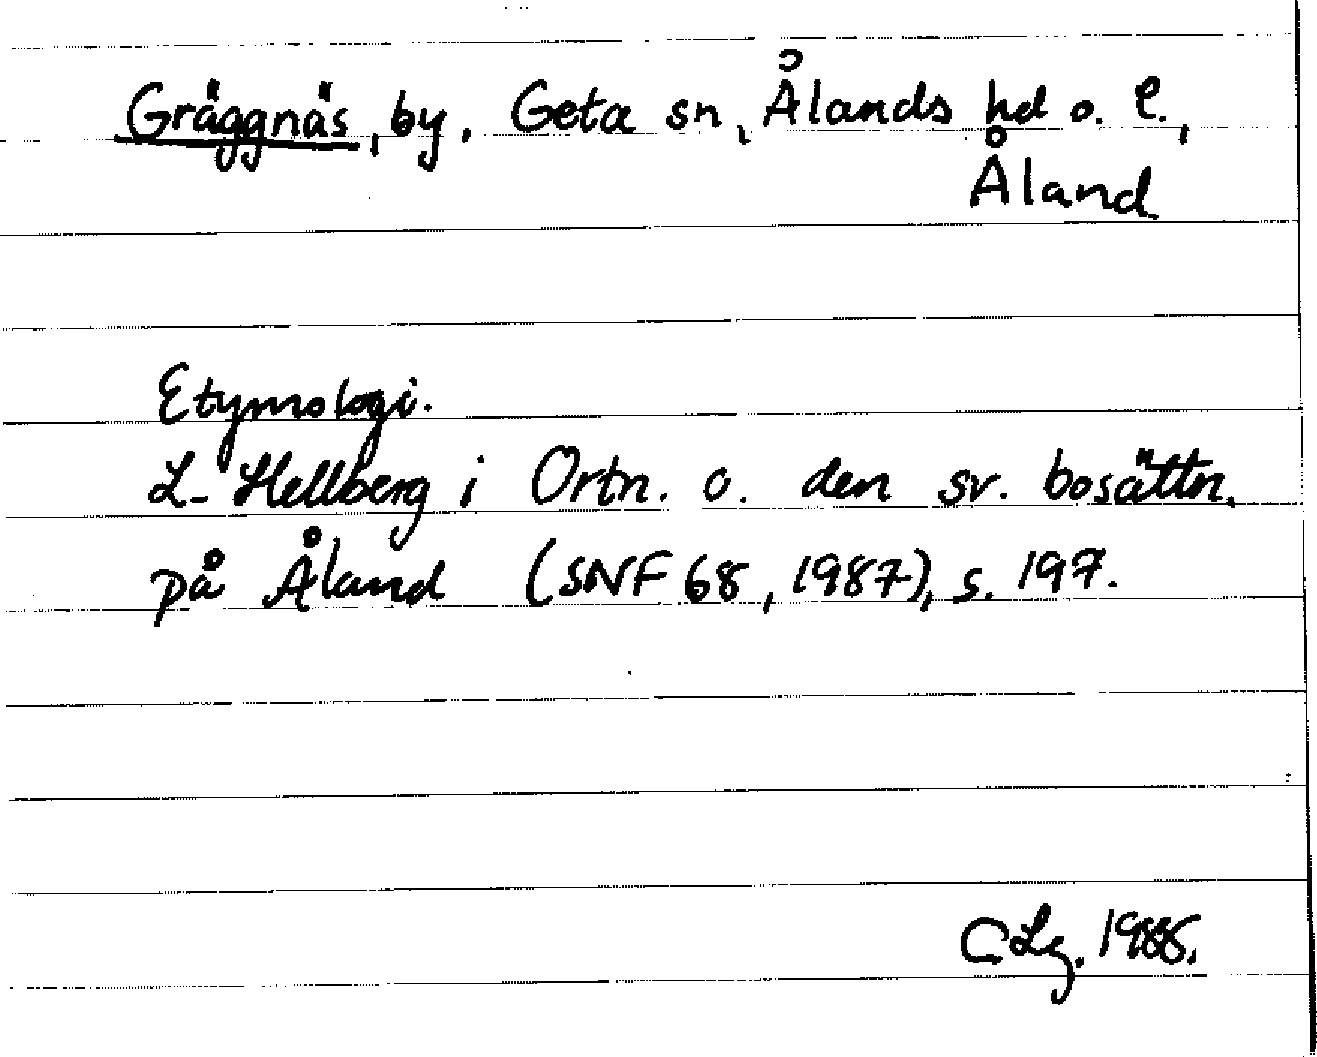 Gräggnäs, by, Geta sn, Ålands hd o. l.,
Åland
Etymologi.
L. Hellberg i Ortn. o. den sv. bosättn.
på Åland (SNF 68, 1987), s. 197.
CLg. 1988.